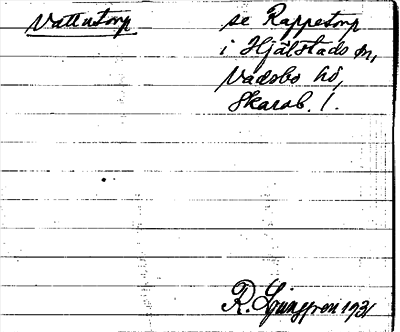 Vallatorp
se Rappetorp
i Hjälstads sn,
Vadsbo hd,
Skarab. l.
R. Ljunggren 1931